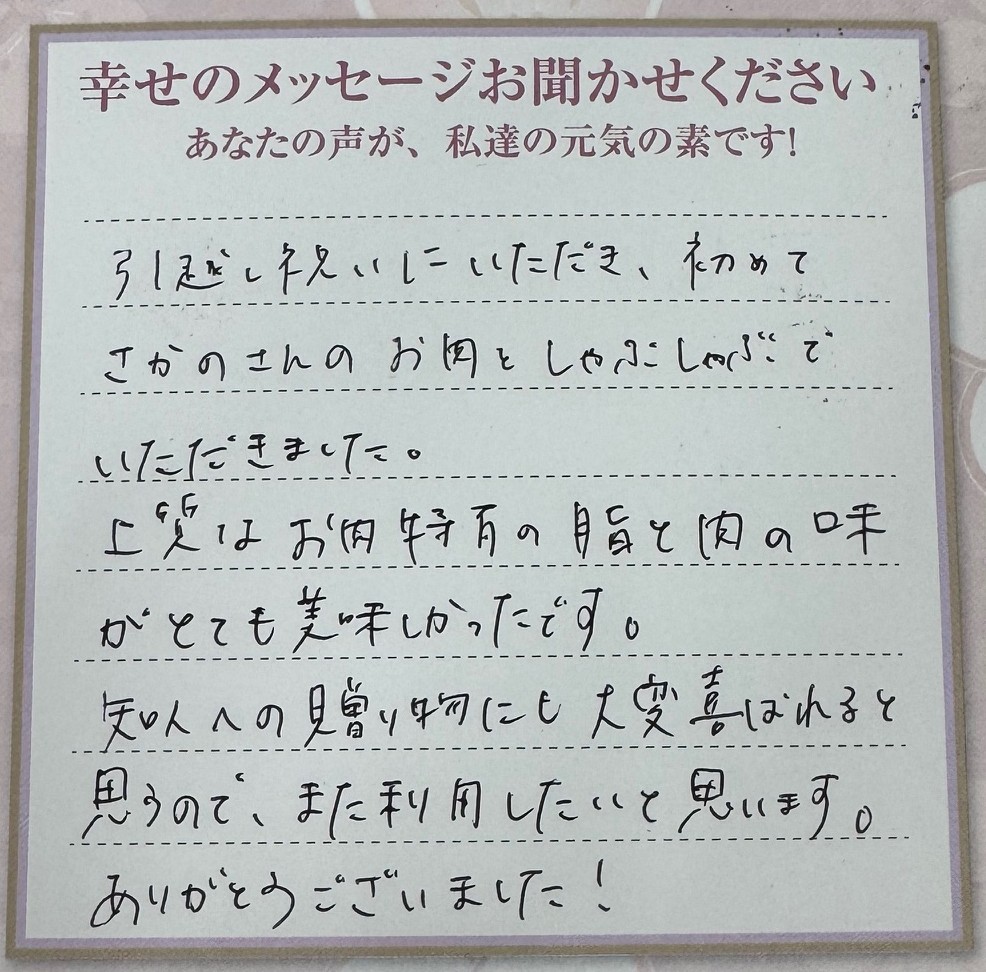 幸せのメッセージお聞かせください
あなたの声が、私達の元気の素です!
引越し祝いにいただき、初めて
さかのさんのお肉をしゃぶしゃぶで
いただきました。
上質はお肉特有の脂と肉の味
がとても美味しかったです。
知人への贈り物にも大変喜ばれると
思うので、また利用したいと思います。
ありがとうございました!